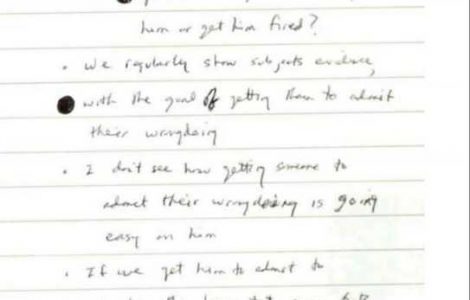 him or get him fired?
• We regularly show subjects evidence,
with the goal of getting them to admit
their wrongdoing
• I don't see how getting someone to
admit their wrongdoing is going
easy on him
• If we get him to admit to